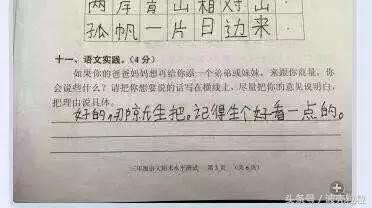 两岸青山相对出
孤帆一片日边来.
十一、语文实践。(4分)
如果你的爸爸妈妈想再给你添一个弟弟或妹妹，来跟你商量，你
会说些什么？请把你想要说的话写在横线上，尽量把你的意见说明白，
把理由说具体。
好的,那就生把。记得生个好看一点的。
三年级语文期末水平测试 第 页 (共 6 页)
头条号 /